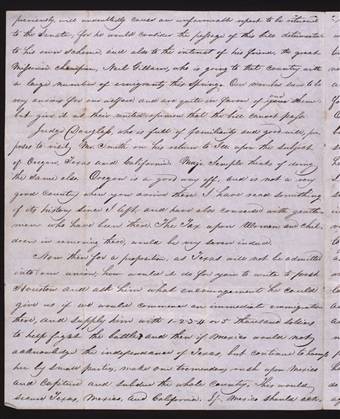 previously will undoubtedly cause an unfavorable report to be returned
to the Senate, for he would consider the passage of this bill detrimental
to his own scheme, and also to the interest of his friend, the great
Missouri champion, Neil Gilliam, who is going to that country with
a large number of emigrants this Spring. Our members seem to be
very anxious for our welfare, and are quite in favor of your
but give it as their united opinion that the bill cannot pass.
Judge Douglas, who is full of familiarity and good will, pro-
poses to visit Mr. Smith on his return to Ill. upon the subject
of Oregon, Texas and California. Maj. Semple thinks of doing
the same also. Oregon is a good way off, and is not a very
good country when you arrive there. I have read something
of its history since I left, and have also conversed with gentle-
men who have been there. The Tax upon Women and Chil-
dren in removing there, would be very severe indeed.
Now then for a proposition, as Texas will not be admitted
into our union, how would it do for you to write to President
Houston and ask him what encouragement he could
give us if we would commence an immediate emigration
there, and supply him with 1-2-3-4 or 5 thousand soldiers
to help fight the battles, and then if Mexico would not
acknowledge the independence of Texas, but continue to harass
her by small parties, make one tremendous rush upon Mexico
and Capture and subdue the whole Country. This would
secure Texas, Mexico, and California. If Mexico should ack-